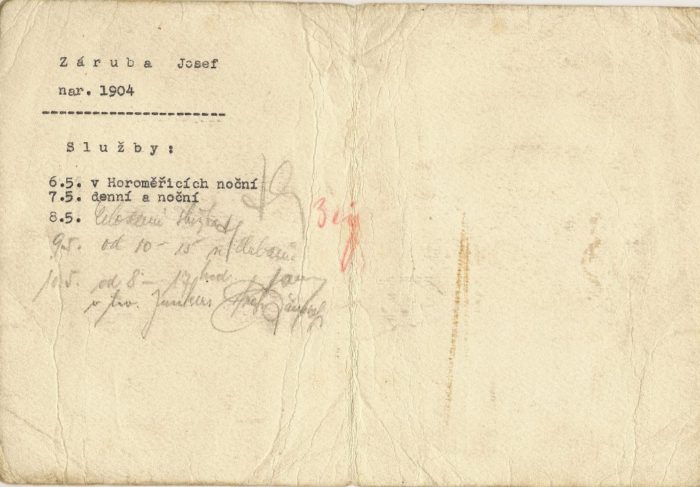 Záruba Josef
nar. 1904
Služby:
6.5. v Horoměřicích noční
7.5. denní a noční
8.5. Celodenní služba
9.5. od 10 - 15
10.5. od 8 - 17 hod.
v tov. Junkers